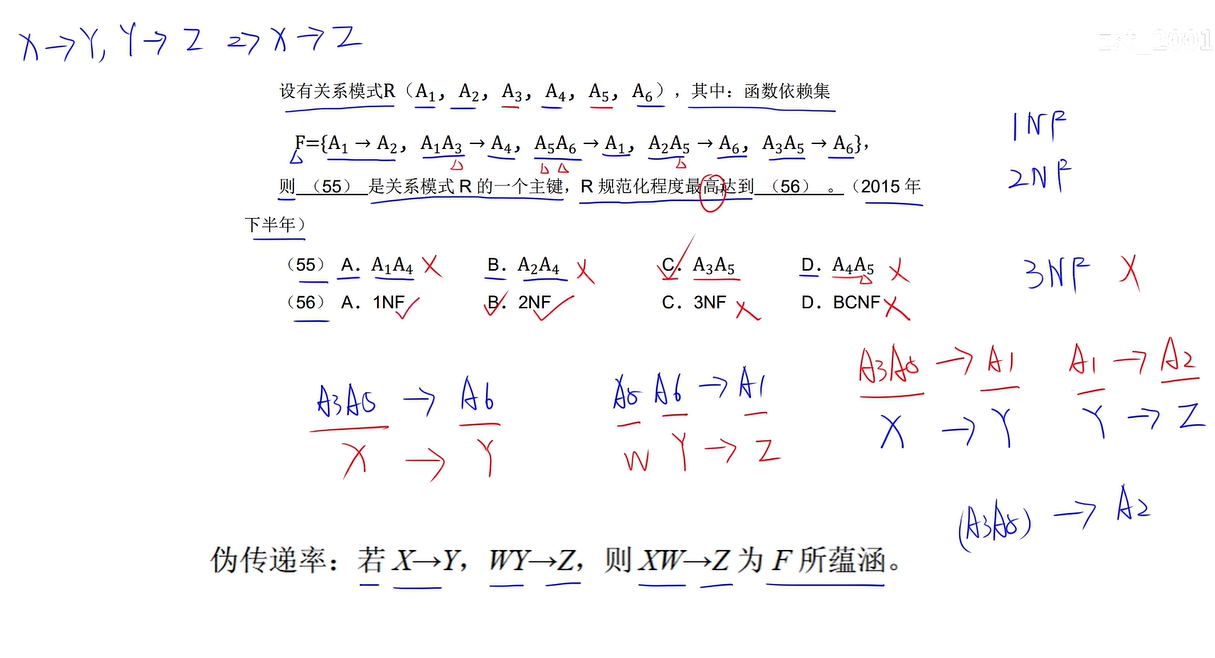 X→Y, Y→Z ⇒ X→Z
设有关系模式R（A₁，A₂，A₃，A₄，A₅，A₆），其中：函数依赖集
F={A₁ → A₂，A₁A₃ → A₄，A₅A₆ → A₁，A₂A₅ → A₆，A₃A₅ → A₆}，
则 （55） 是关系模式 R 的一个主键，R 规范化程度最高达到 （56） 。（2015 年
下半年）
（55）A．A₁A₄ B．A₂A₄ C．A₃A₅ D．A₄A₅
（56）A．1NF B．2NF C．3NF D．BCNF
1NF
2NF
3NF X
A3A5 → A6
X → Y
A5 A6 → A1
W Y → Z
A3A5 → A1 A1 → A2
X → Y Y → Z
(A3A5) → A2
伪传递率：若 X→Y，WY→Z，则 XW→Z 为 F 所蕴涵。